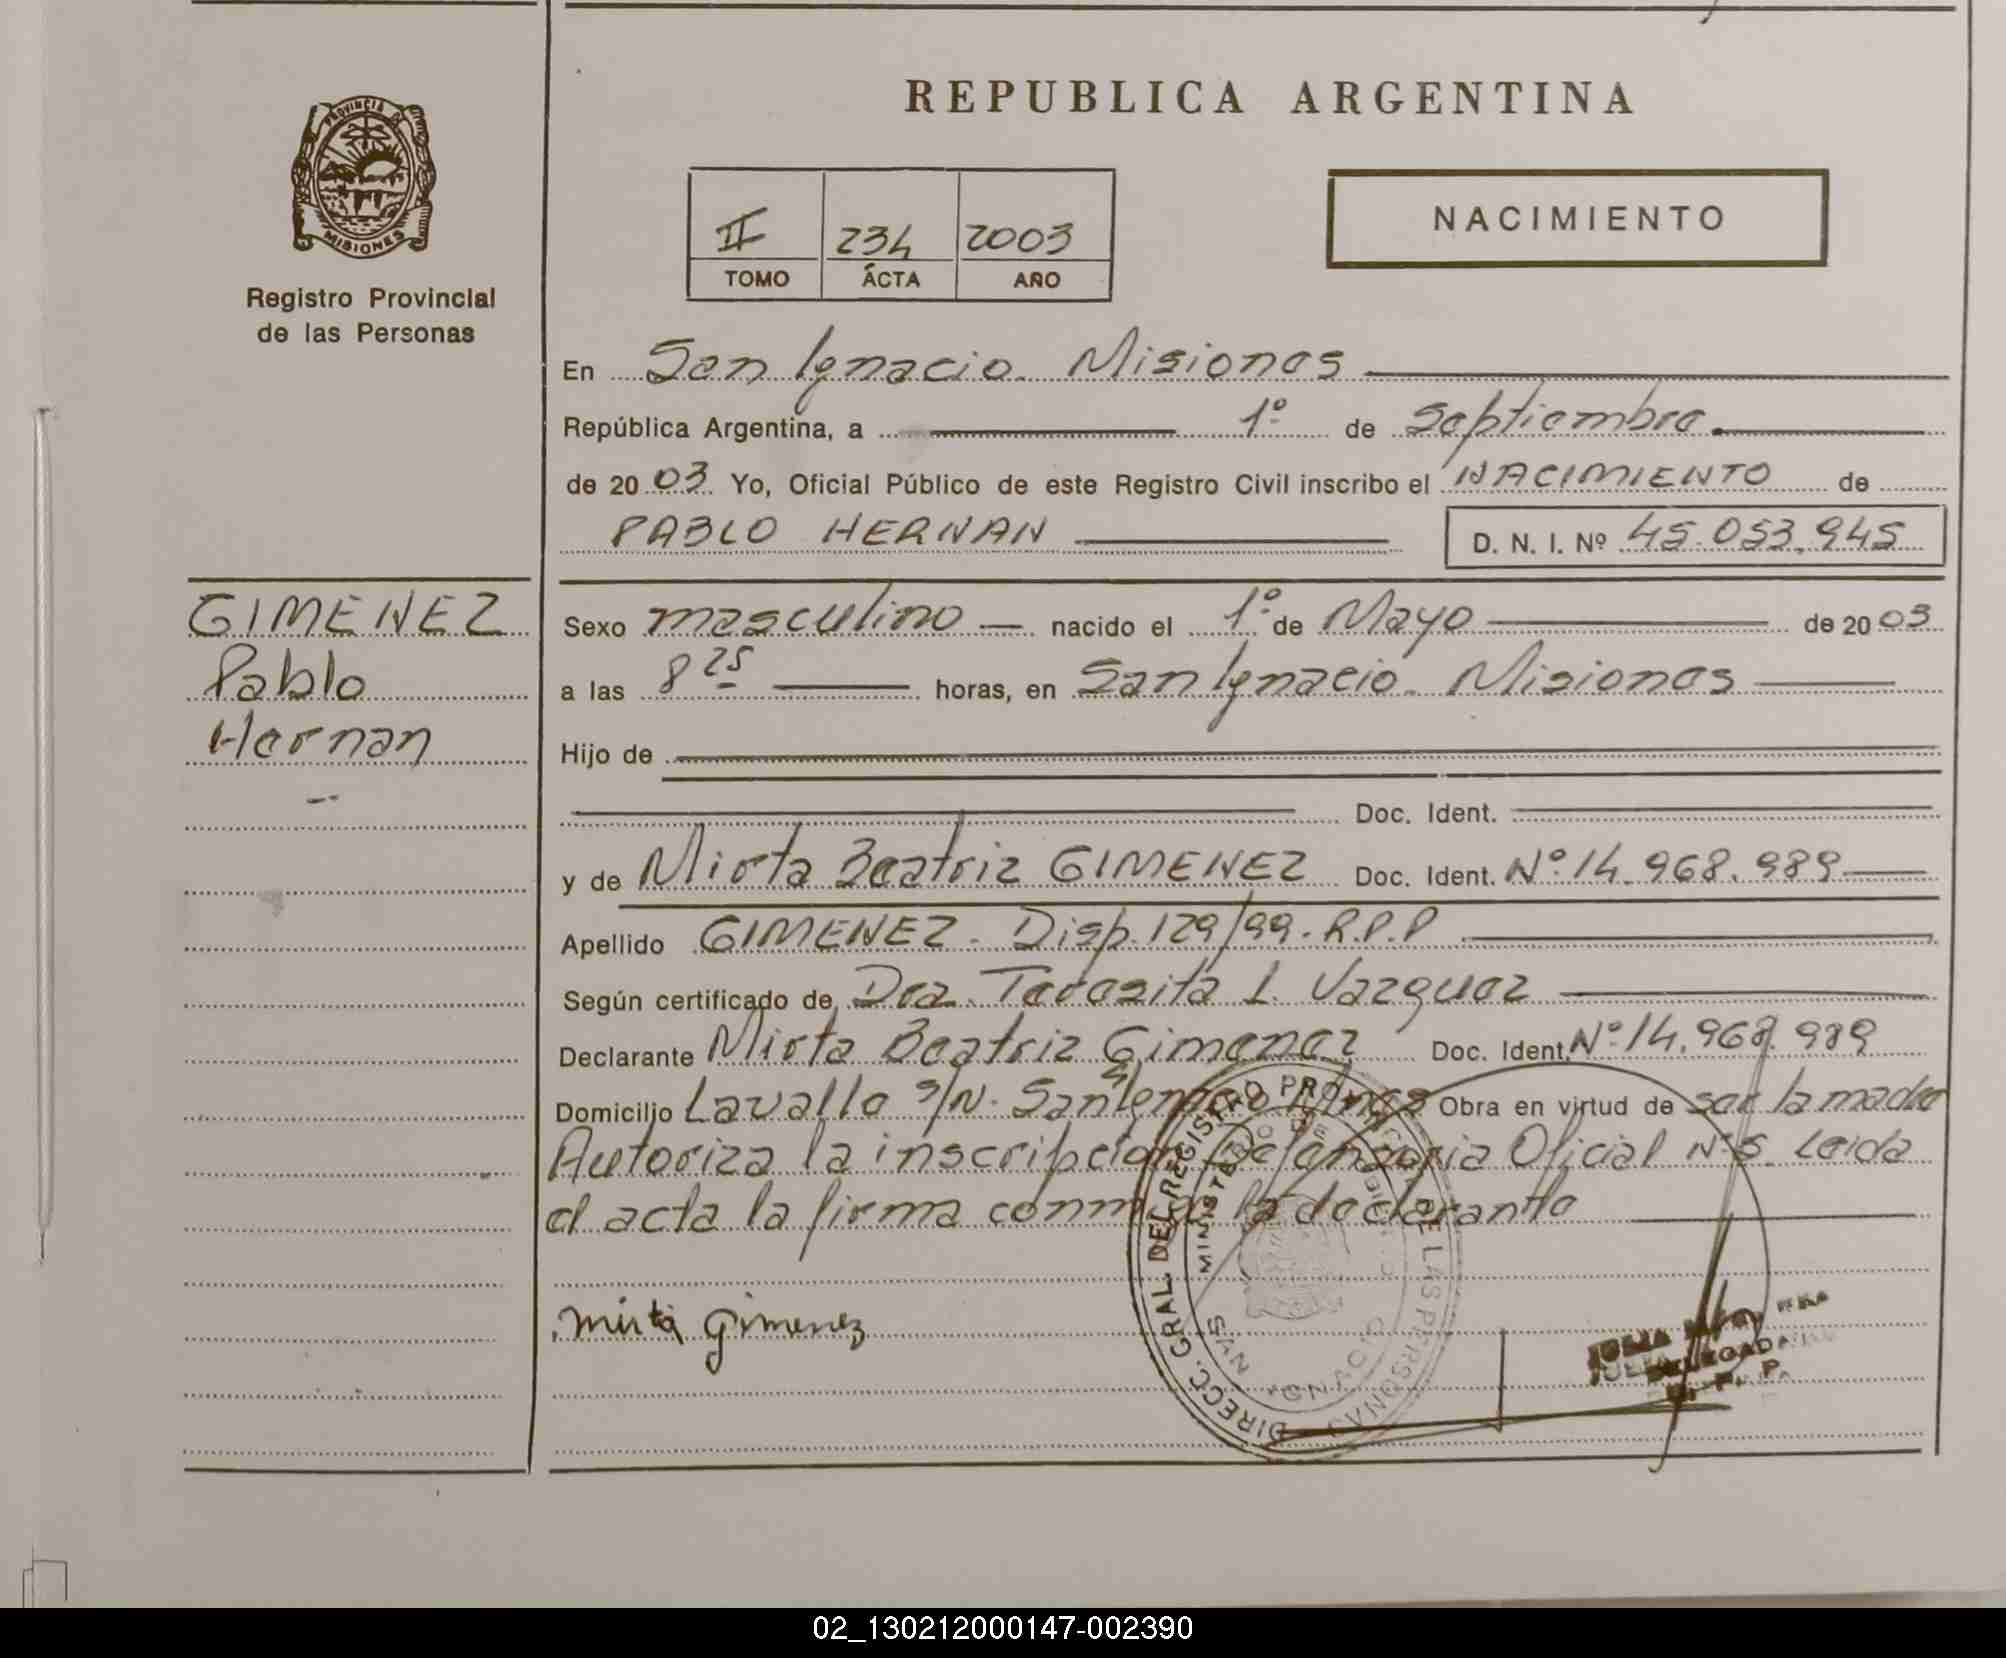 REPUBLICA ARGENTINA
PROVINCIA DE MISIONES
Registro Provincial
de las Personas
II 234 2003
TOMO ACTA AÑO
NACIMIENTO
En San Ignacio. Misiones
República Argentina, a 1º de Septiembre.
de 2003 Yo, Oficial Público de este Registro Civil inscribo el NACIMIENTO de
PABLO HERNAN D. N. I. Nº 45.053.945
GIMENEZ
Pablo
Hernan
Sexo masculino nacido el 1º de Mayo de 2003
a las 8 25 horas, en San Ignacio. Misiones
Hijo de
Doc. Ident.
y de Mirta Beatriz GIMENEZ Doc. Ident. Nº 14.968.989
Apellido GIMENEZ. Disp. 129/99. R.P.P
Según certificado de Dra. Teresita L. Vazquez
Declarante Mirta Beatriz Gimenez Doc. Ident. Nº 14.968.989
Domicilio Lavalle s/N. San Ignacio Mnes Obra en virtud de ser la madre
Autoriza la inscripcion Defensoria Oficial Nº 5. Leida
el acta la firma conmigo la declarante
Mirta Gimenez
DIRECC. GRAL. DEL REGISTRO PROVINCIAL DE LAS PERSONAS
MINISTERIO DE GOBIERNO
DELEGADA
R. P. P.
02_130212000147-002390